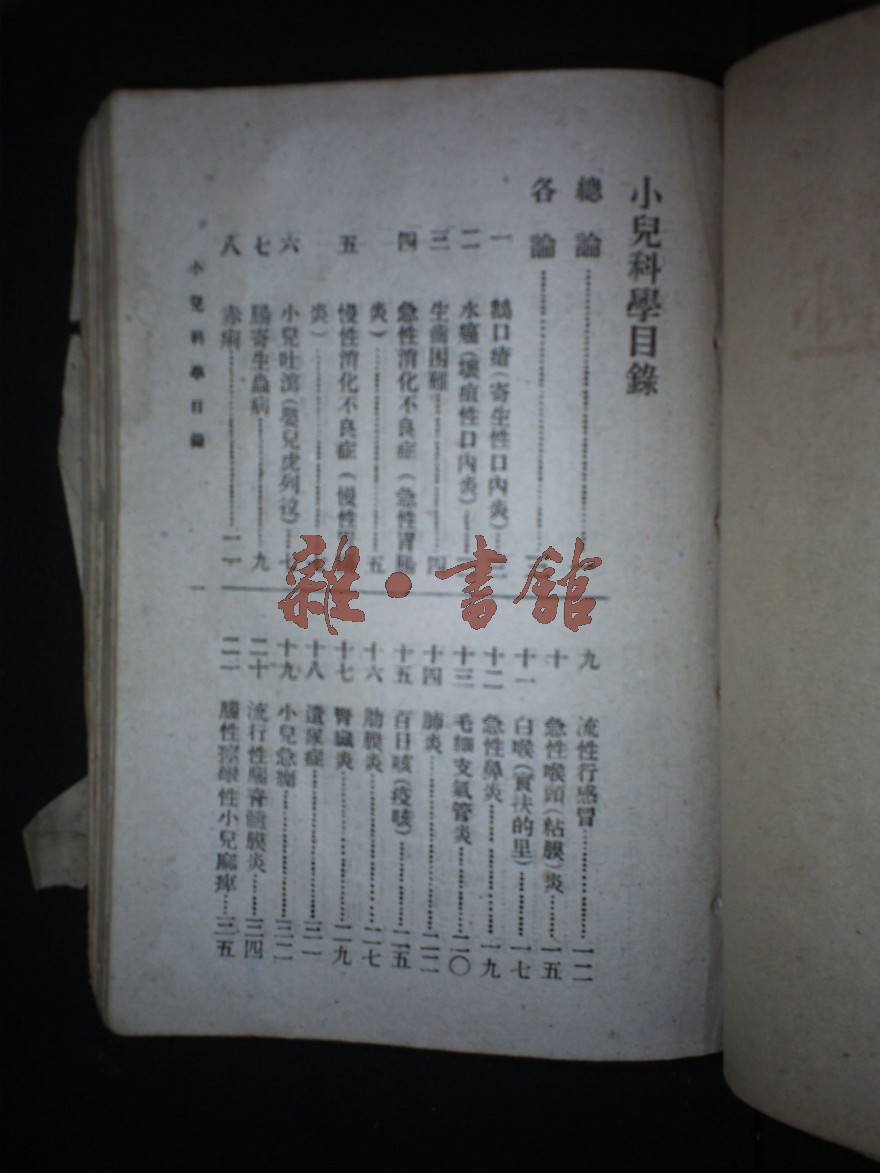 小兒科學目錄
總論
各論
一 鵝口瘡(寄生性口內炎)
二 水癌(壞疽性口內炎)
三 生齒困難 四
四 急性消化不良症(急性胃腸
炎) 五
五 慢性消化不良症(慢性
炎)
六 小兒吐瀉(嬰兒虎列拉) 七
七 腸寄生蟲病 九
八 赤痢 一一
九 流性行感冒 一二
十 急性喉頭(粘膜)炎 一五
十一 白喉(實扶的里) 一七
十二 急性鼻炎 一九
十三 毛細支氣管炎 二〇
十四 肺炎 二二
十五 百日咳(疫咳) 二五
十六 肋膜炎 二七
十七 腎臟炎 二九
十八 遺尿症 三一
十九 小兒急癇 三二
二十 流行性腦脊髓膜炎 三四
二一 腦性痙攣性小兒麻痺 三五
小兒科學目錄
一
雜·書館